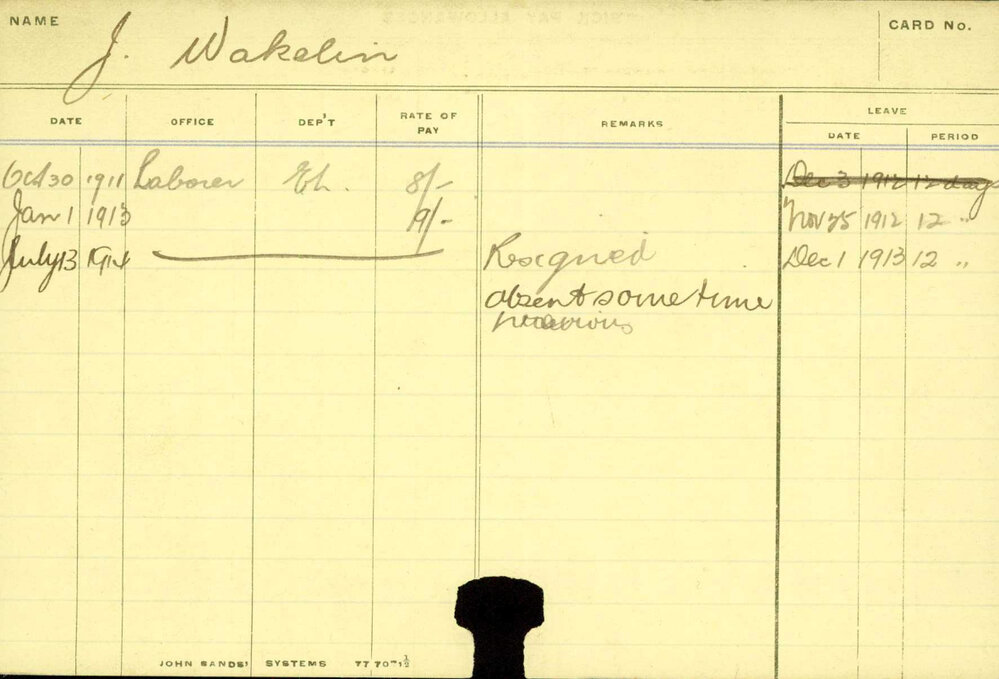 NAME J. Wakelin CARD No.
DATE OFFICE DEP'T RATE OF PAY REMARKS LEAVE
DATE PERIOD
Oct 30 1911 Laborer 8/- Dec 3 1912 12 days
Jan 1 1913 9/- Nov 25 1912 12 "
July 13 1914 Resigned Dec 1 1913 12 "
absent some time
previous
JOHN SANDS' SYSTEMS 77 70